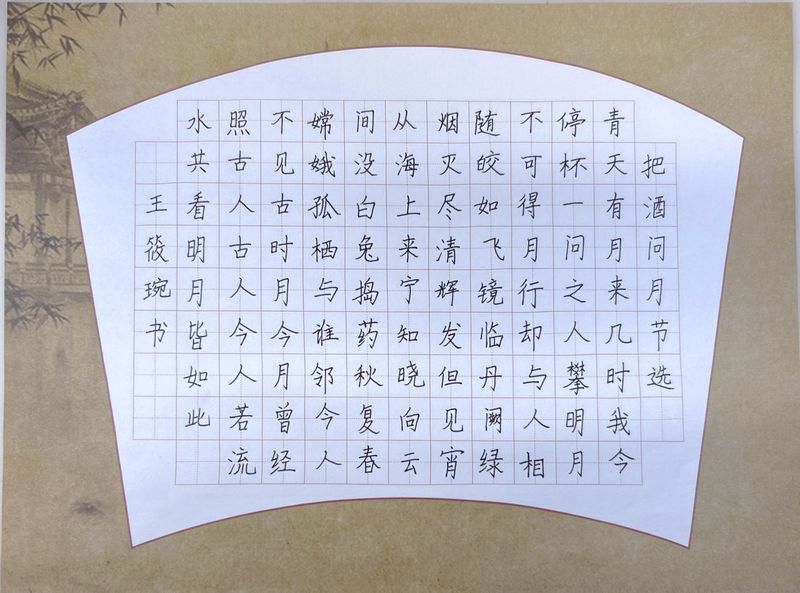 把酒问月节选
青天有月来几时我今
停杯一问之人攀明月
不可得月行却与人相
随皎如飞镜临丹阙绿
烟灭尽清辉发但见宵
从海上来宁知晓向云
间没白兔捣药秋复春
嫦娥孤栖与谁邻今人
不见古时月今月曾经
照古人古人今人若流
水共看明月皆如此
王筱琬书